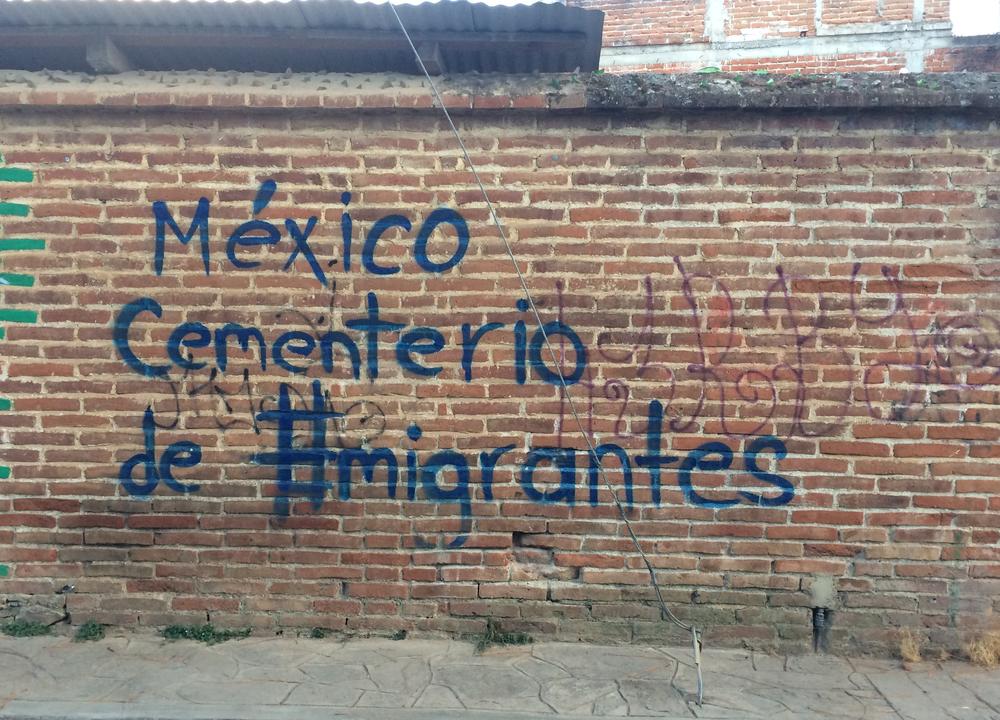 México
Cementerio
de #migrantes